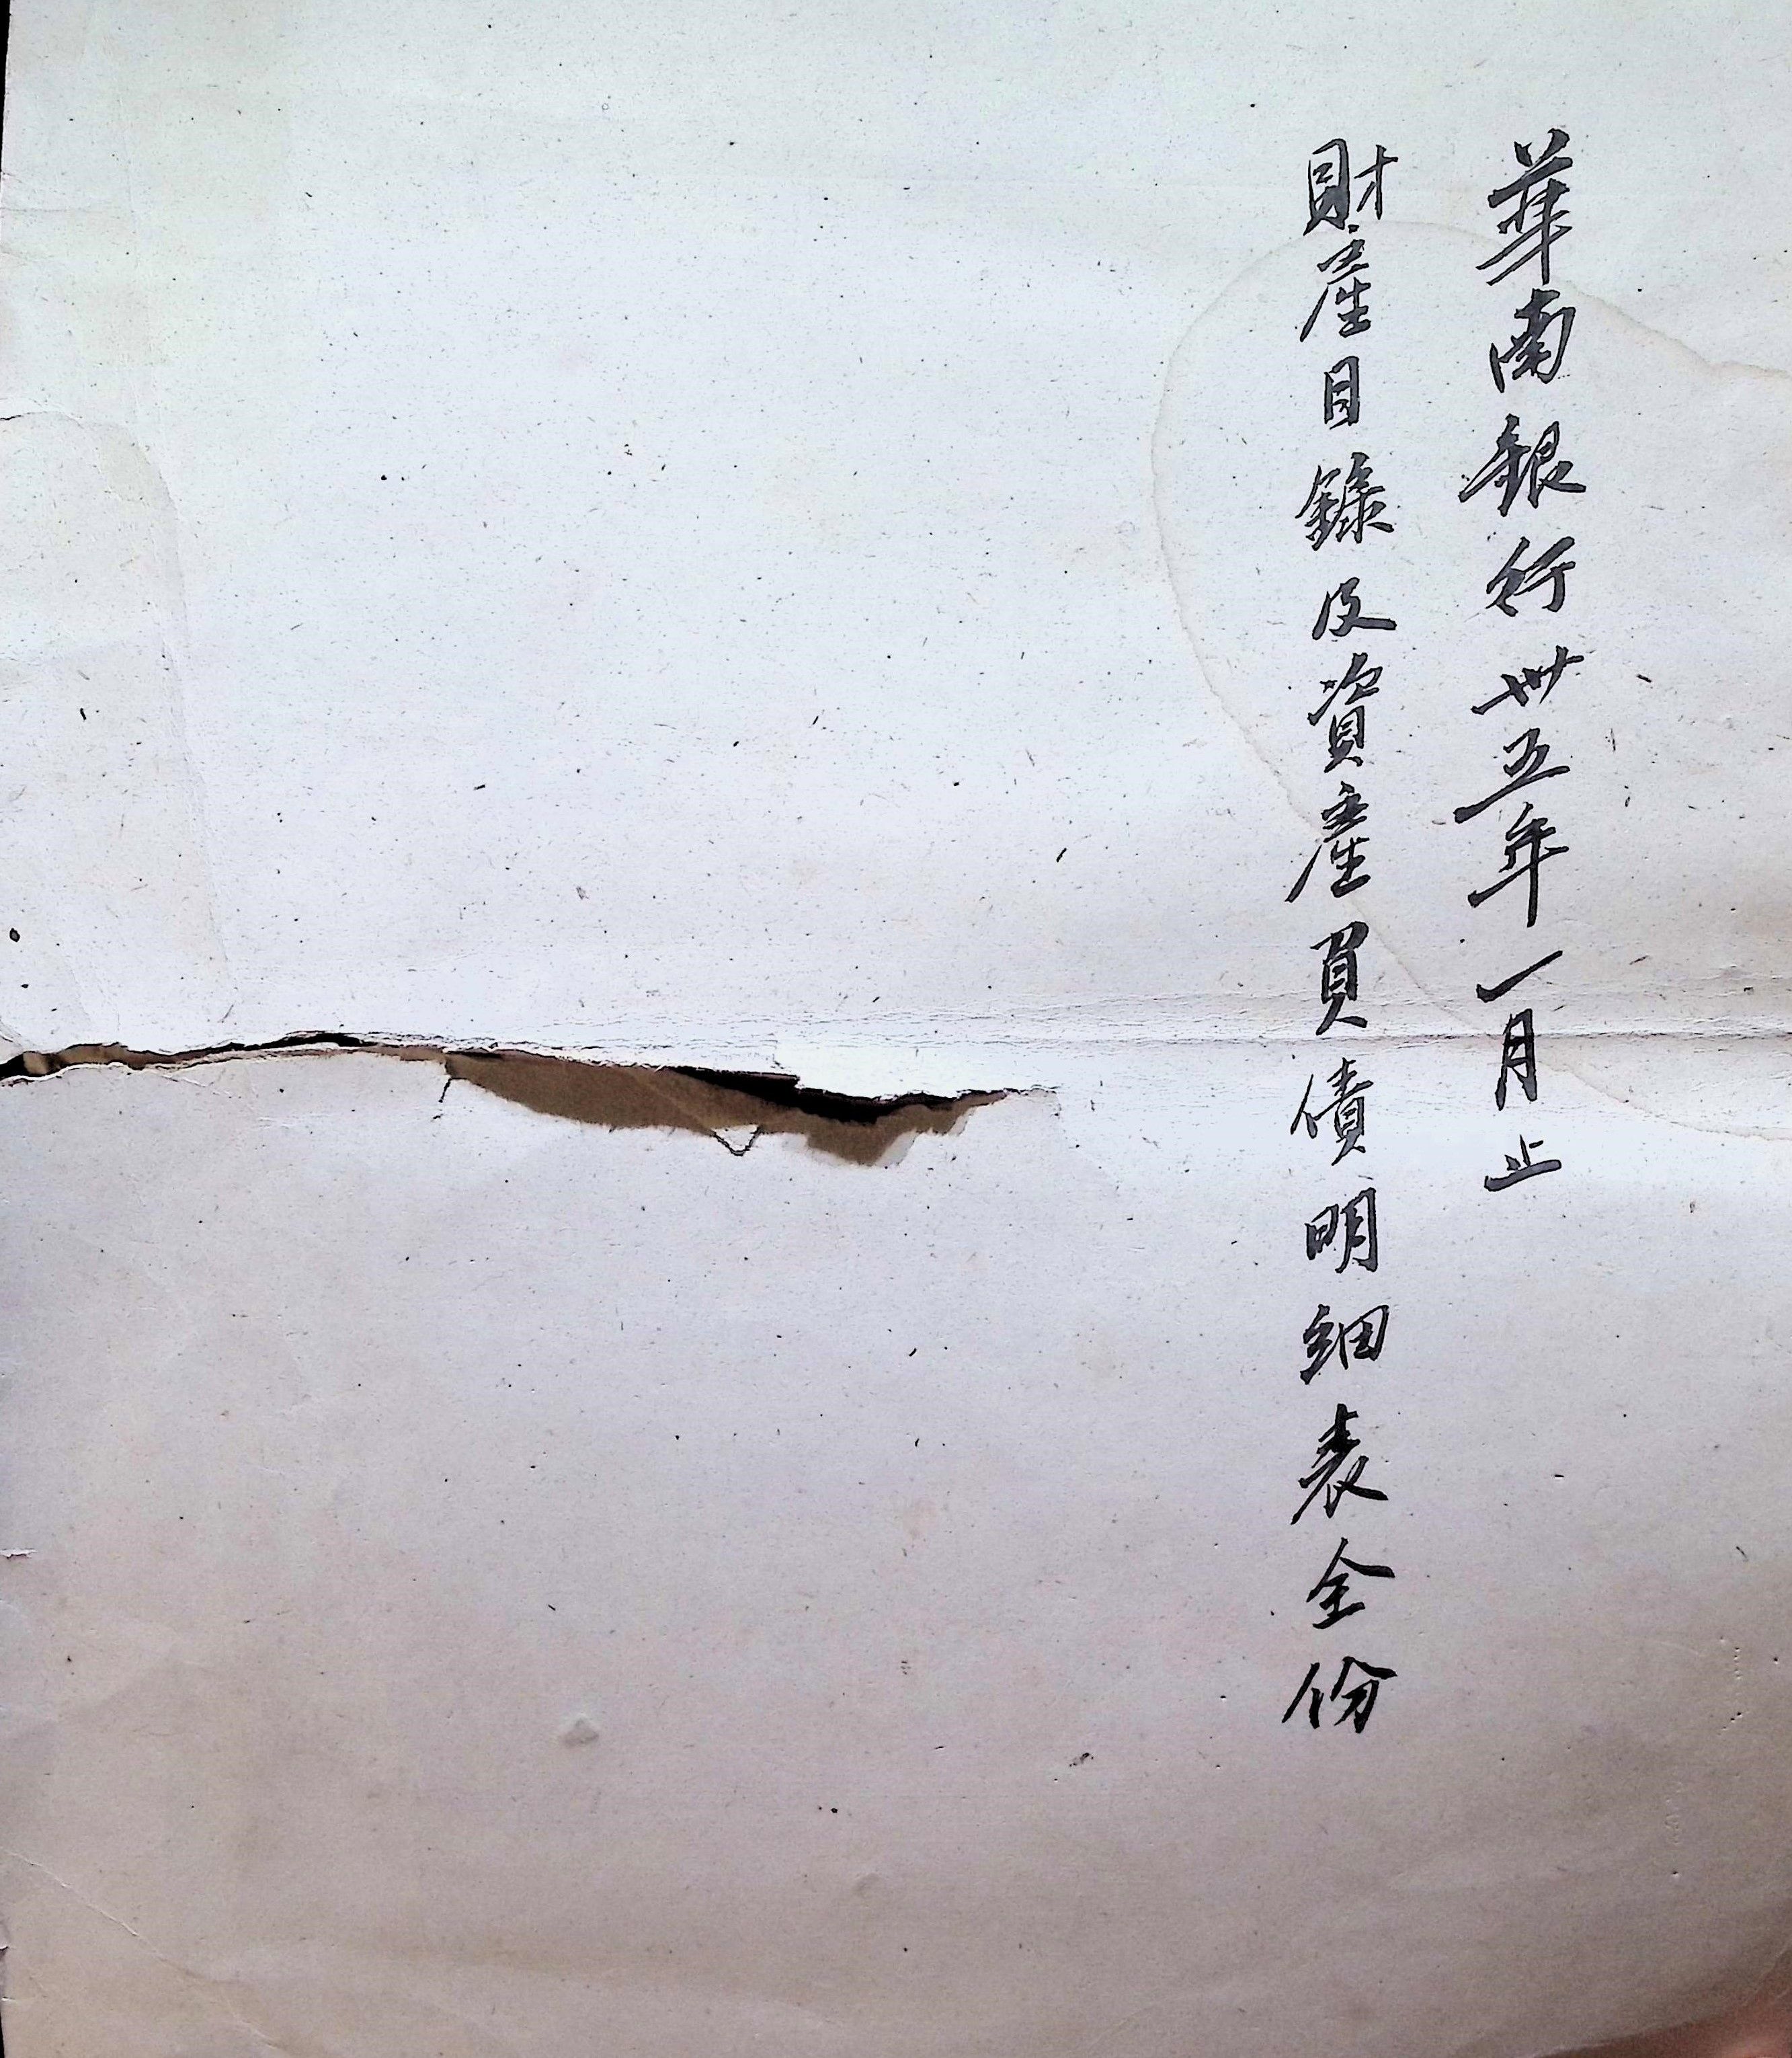 華南銀行卅五年一月止
財產目錄及資產負債明細表全份